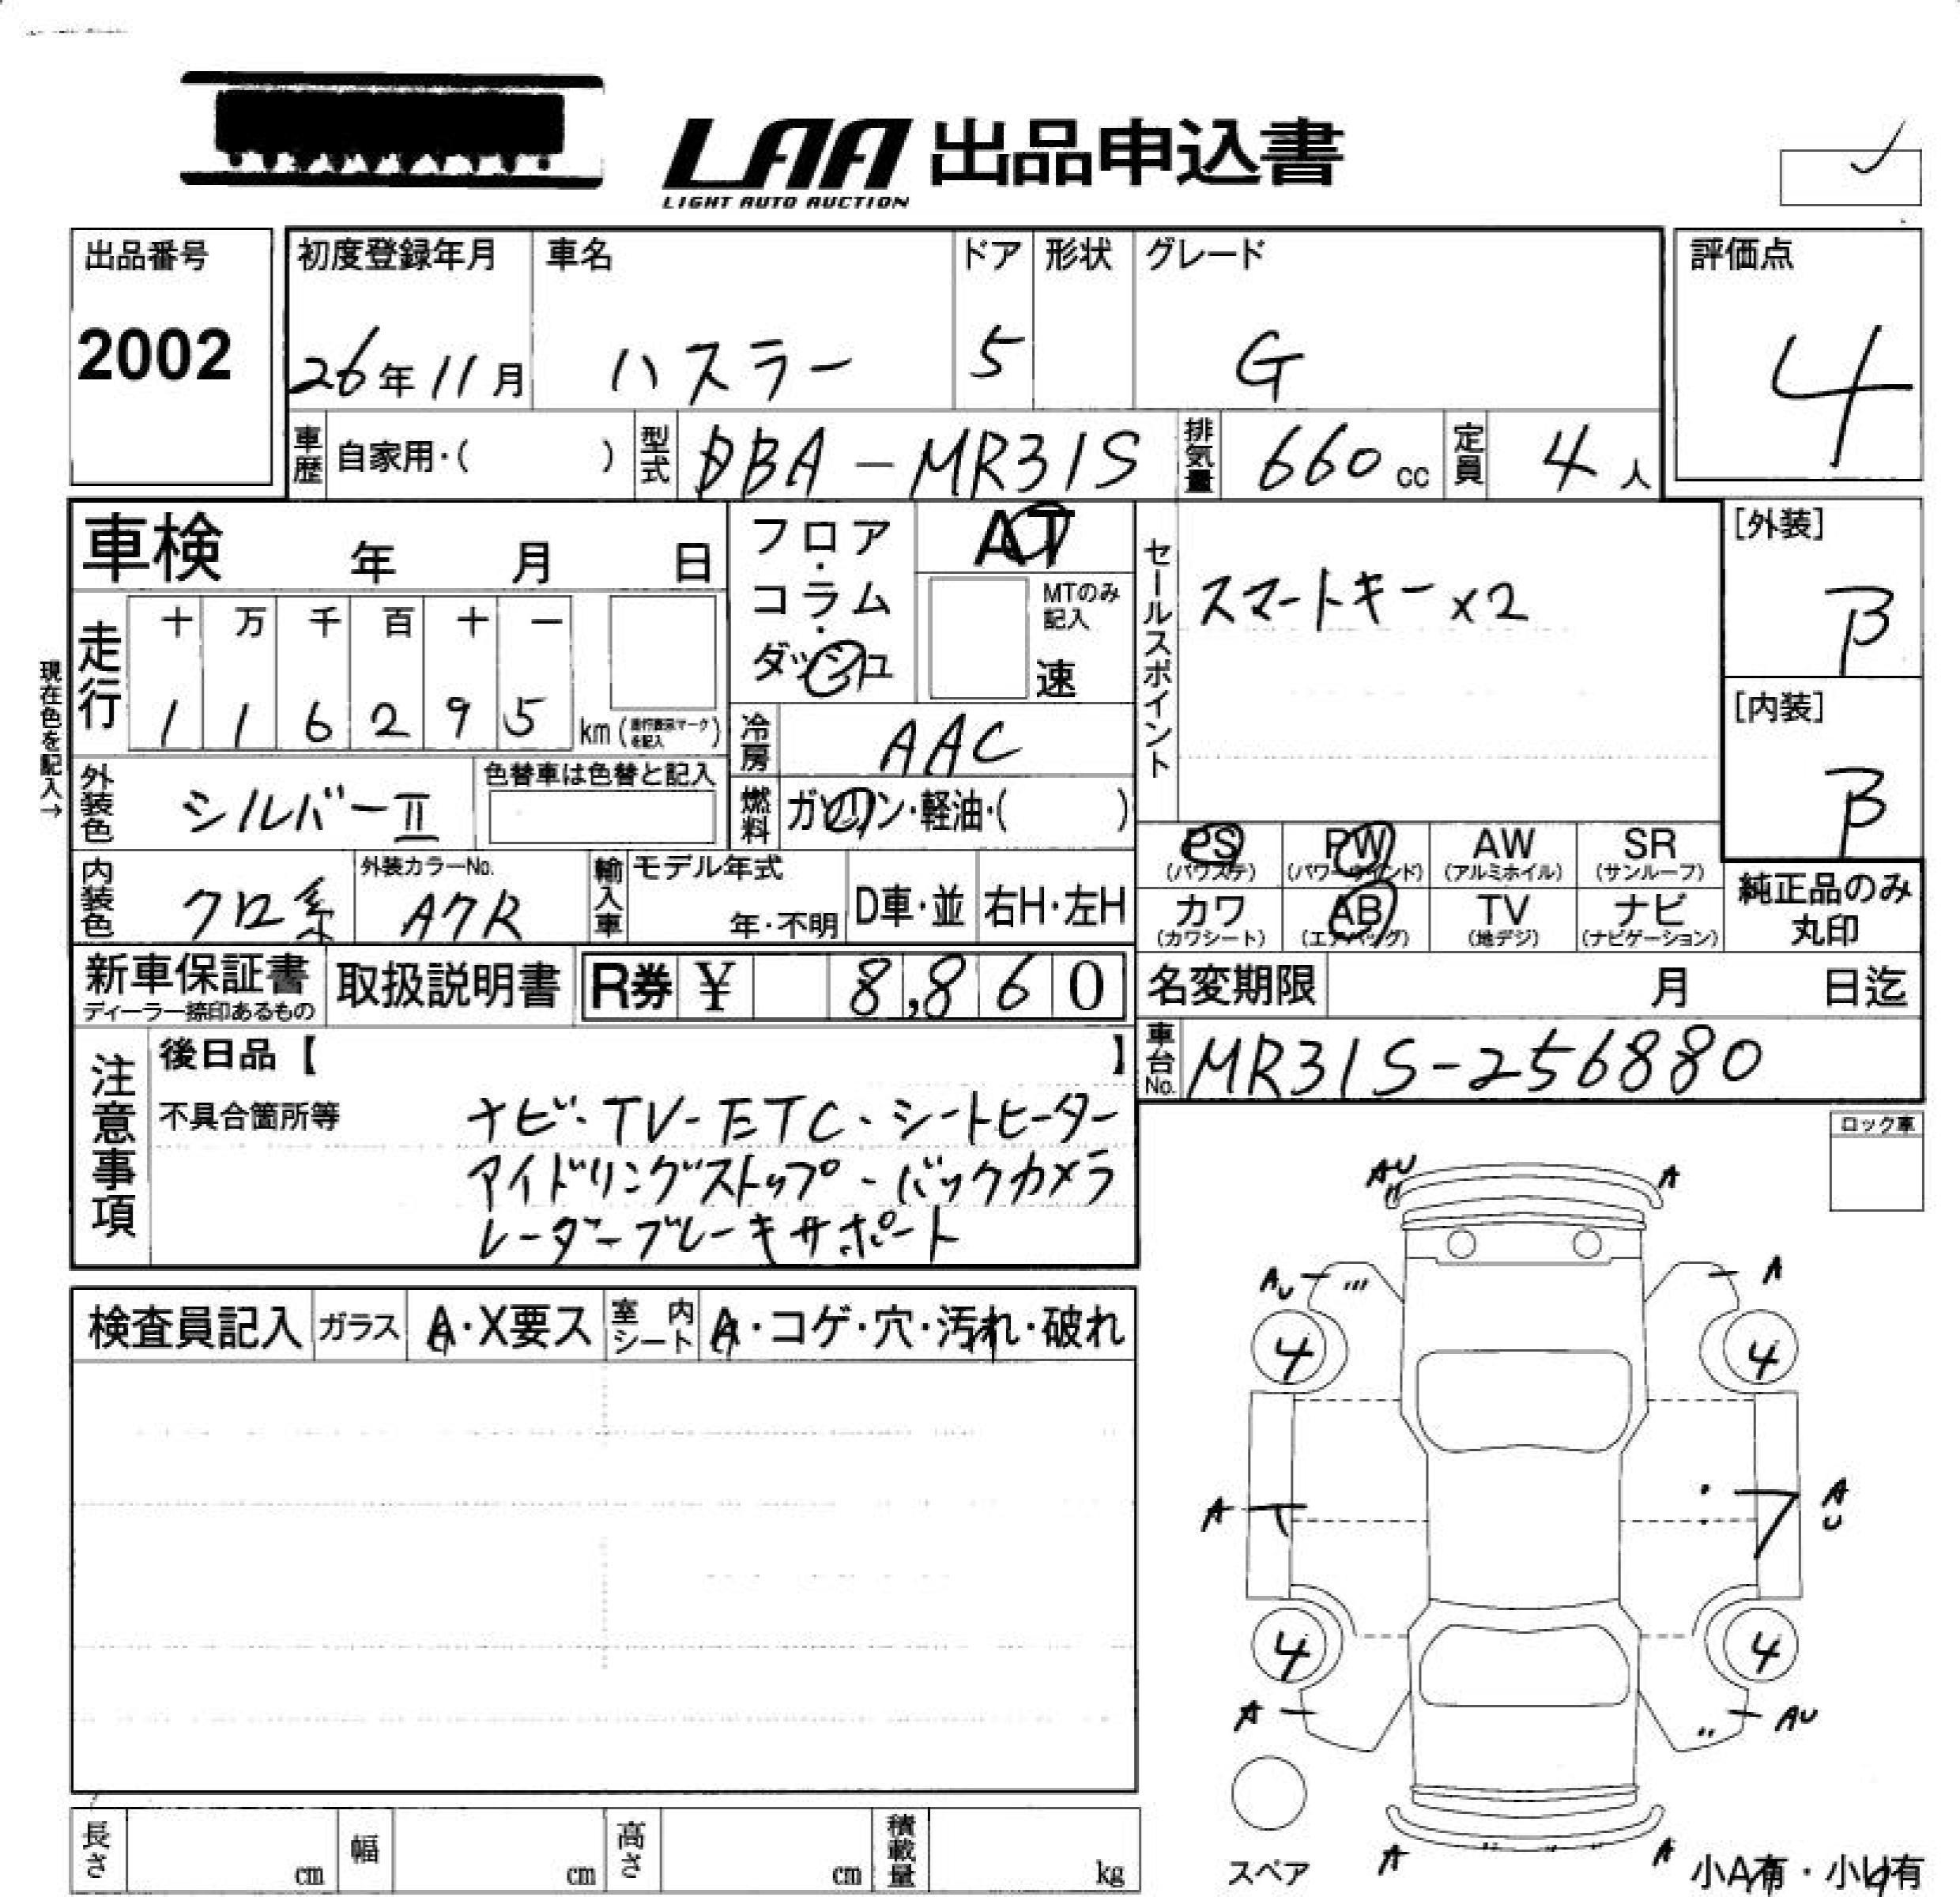 LAA 出品申込書
LIGHT AUTO AUCTION
出品番号
2002
初度登録年月
26年11月
車名
ハスラー
ドア
5
形状
グレード
G
評価点
4
車歴
自家用・( )
型式
DBA-MR31S
排気量
660cc
定員
4人
車検 年 月 日
フロア・コラム・ダッシュ
AT
MTのみ記入
速
セールスポイント
スマートキー×2
[外装]
B
[内装]
B
現在色を記入→
走行
十 万 千 百 十 一
1 1 6 2 9 5
km
冷房
AAC
外装色
シルバーⅡ
色替車は色替と記入
燃料
ガソリン・軽油・( )
PS
(パワステ)
PW
(パワーウインド)
AW
(アルミホイル)
SR
(サンルーフ)
カワ
(カワシート)
AB
(エアバッグ)
TV
(地デジ)
ナビ
(ナビゲーション)
純正品のみ
丸印
内装色
クロ系
外装カラーNo.
輸入車
モデル年式
年・不明
D車・並
右H・左H
新車保証書
ディーラー捺印あるもの
取扱説明書
R券 ¥ 8,860
名変期限 月 日迄
車台No.
MR31S-256880
注意事項
後日品【 】
不具合箇所等
ナビ・TV・ETC・シートヒーター
アイドリングストップ・バックカメラ
レーダーブレーキサポート
ロック車
AU
A
AU
A
4
4
A
A
U
4
4
A
AU
A
A
検査員記入
ガラス
A・X要ス
室内シート
A・コゲ・穴・汚れ・破れ
長さ
cm
幅
cm
高さ
cm
積載量
kg
スペア
小A有・小U有